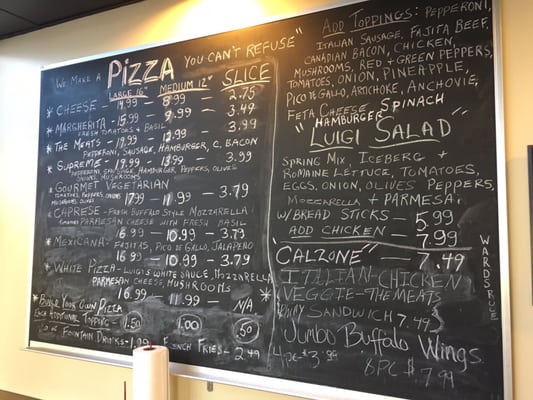 "WE MAKE A PIZZA YOU CAN'T REFUSE"
LARGE 16" MEDIUM 12" SLICE
* CHEESE - 14.99 - 8.99 - 2.75
* MARGHERITA - 15.99 - 9.99 - 3.49
FRESH TOMATOES & BASIL
* THE MEATS - 19.99 - 12.99 - 3.99
PEPPERONI, SAUSAGE, HAMBURGER, C. BACON
* SUPREME - 19.99 - 13.99 - 3.99
PEPPERONI, SAUSAGE, HAMBURGER, PEPPERS, OLIVES
ONIONS, MUSHROOMS
* GOURMET VEGETARIAN
TOMATOES, PEPPERS, ONIONS, OLIVES, MUSHROOMS 17.99 - 11.99 - 3.79
* CAPRESE - FRESH BUFFALO STYLE MOZZARELLA
TOMATOES PARMESAN CHEESE WITH FRESH BASIL
16.99 - 10.99 - 3.79
* MEXICANA - FAJITAS, PICO DE GALLO, JALAPEÑO
16.99 - 10.99 - 3.79
* WHITE PIZZA - LUIGI'S WHITE SAUCE, MOZZARELLA
PARMESAN CHEESE, MUSHROOMS
16.99 - 11.99 - N/A
* BUILD YOUR OWN PIZZA
EACH ADDITIONAL TOPPING 1.50 1.00 .50
FOUNTAIN DRINKS - 1.99 FRENCH FRIES - 2.49
ADD TOPPINGS: PEPPERONI,
ITALIAN SAUSAGE, FAJITA BEEF,
CANADIAN BACON, CHICKEN
MUSHROOMS, RED & GREEN PEPPERS,
TOMATOES, ONION, PINEAPPLE,
PICO DE GALLO, ARTICHOKE, ANCHOVIE,
FETA CHEESE SPINACH
HAMBURGER
"LUIGI SALAD"
SPRING MIX, ICEBERG &
ROMAINE LETTUCE, TOMATOES,
EGGS, ONION, OLIVES PEPPERS,
MOZZARELLA & PARMESAN
W/BREAD STICKS - 5.99
ADD CHICKEN - 7.99
"CALZONE" - 7.49
ITALIAN-CHICKEN
VEGGIE-THE MEATS
SANDWICH 7.49
JUMBO BUFFALO WINGS
4PC $3.99 6PC $7.99
WARDS RULE